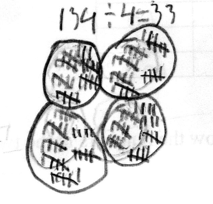 134÷4=33